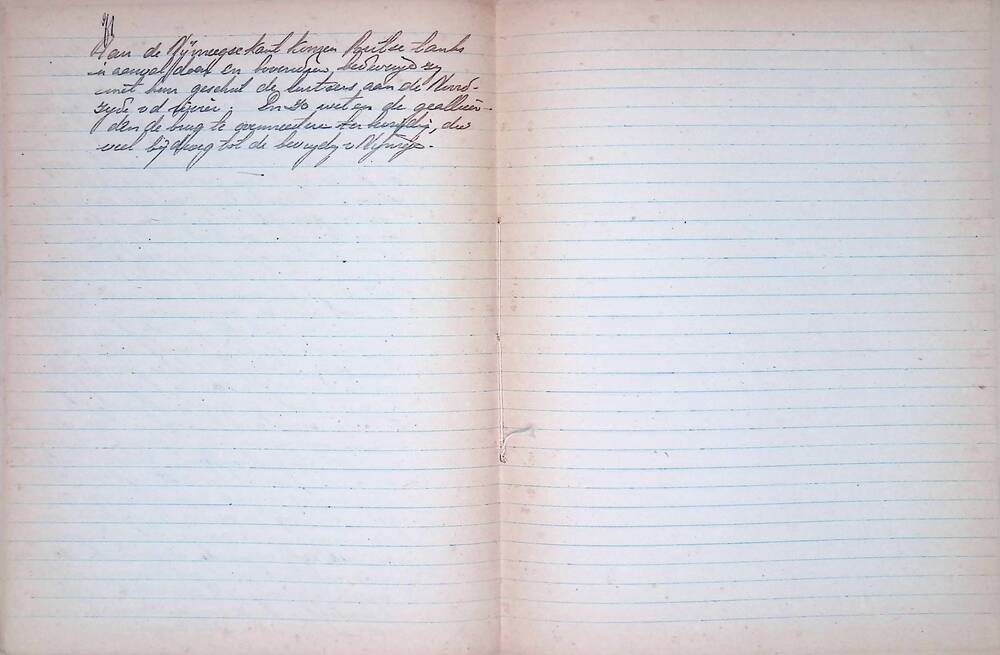 Aan de Nijmeegse kant kwamen Britse tanks
in aanval, daar en bovendien
met hun geschut de Duitsers aan de Noord-
zijde v d rivier. En zo wisten de geallieer-
den de brug te vermeesteren, die
veel bijdroeg tot de bevrijdg v Nijmegn.